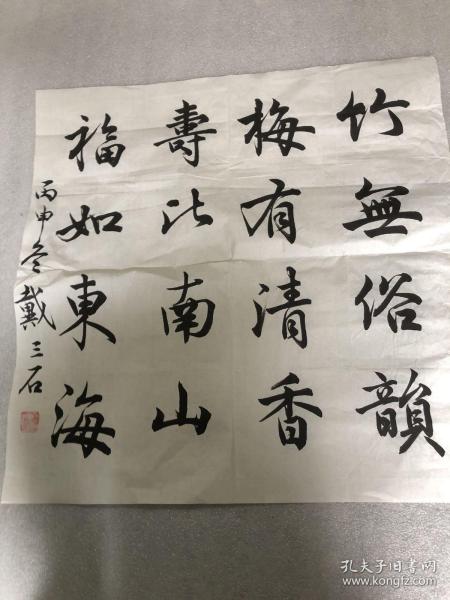 竹無俗韻
梅有清香
壽比南山
福如東海
丙申冬戴三石
孔夫子旧书网
www.kongfz.com